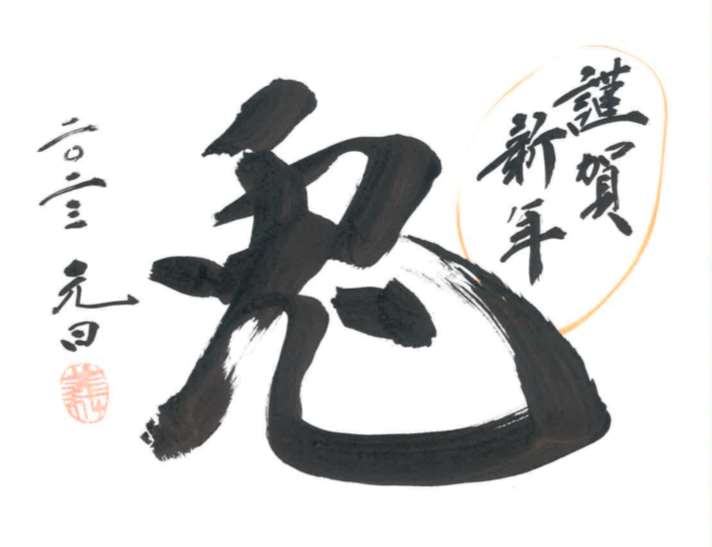 謹賀
新年
兎
二〇二三 元日